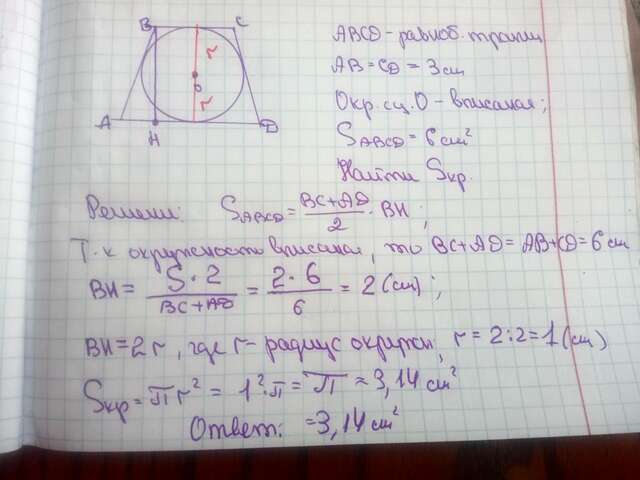 B C
r
O
r
A H D
ABCD - равноб. трапец
AB = CD = 3 см
Окр. с ц. O - вписаная;
S ABCD = 6 см²
Найти Sкр.
Решени: S ABCD = (BC + AD)/2 · BH ;
Т.к окружность вписаная, то BC + AD = AB + CD = 6 см
BH = (S · 2)/(BC + AD) = (2 · 6)/6 = 2 (см) ;
BH = 2r, где r - радиус окружн, r = 2 : 2 = 1 (см)
Sкр = πr² = 1² · π = π ≈ 3,14 см²
Ответ: ≈ 3,14 см²